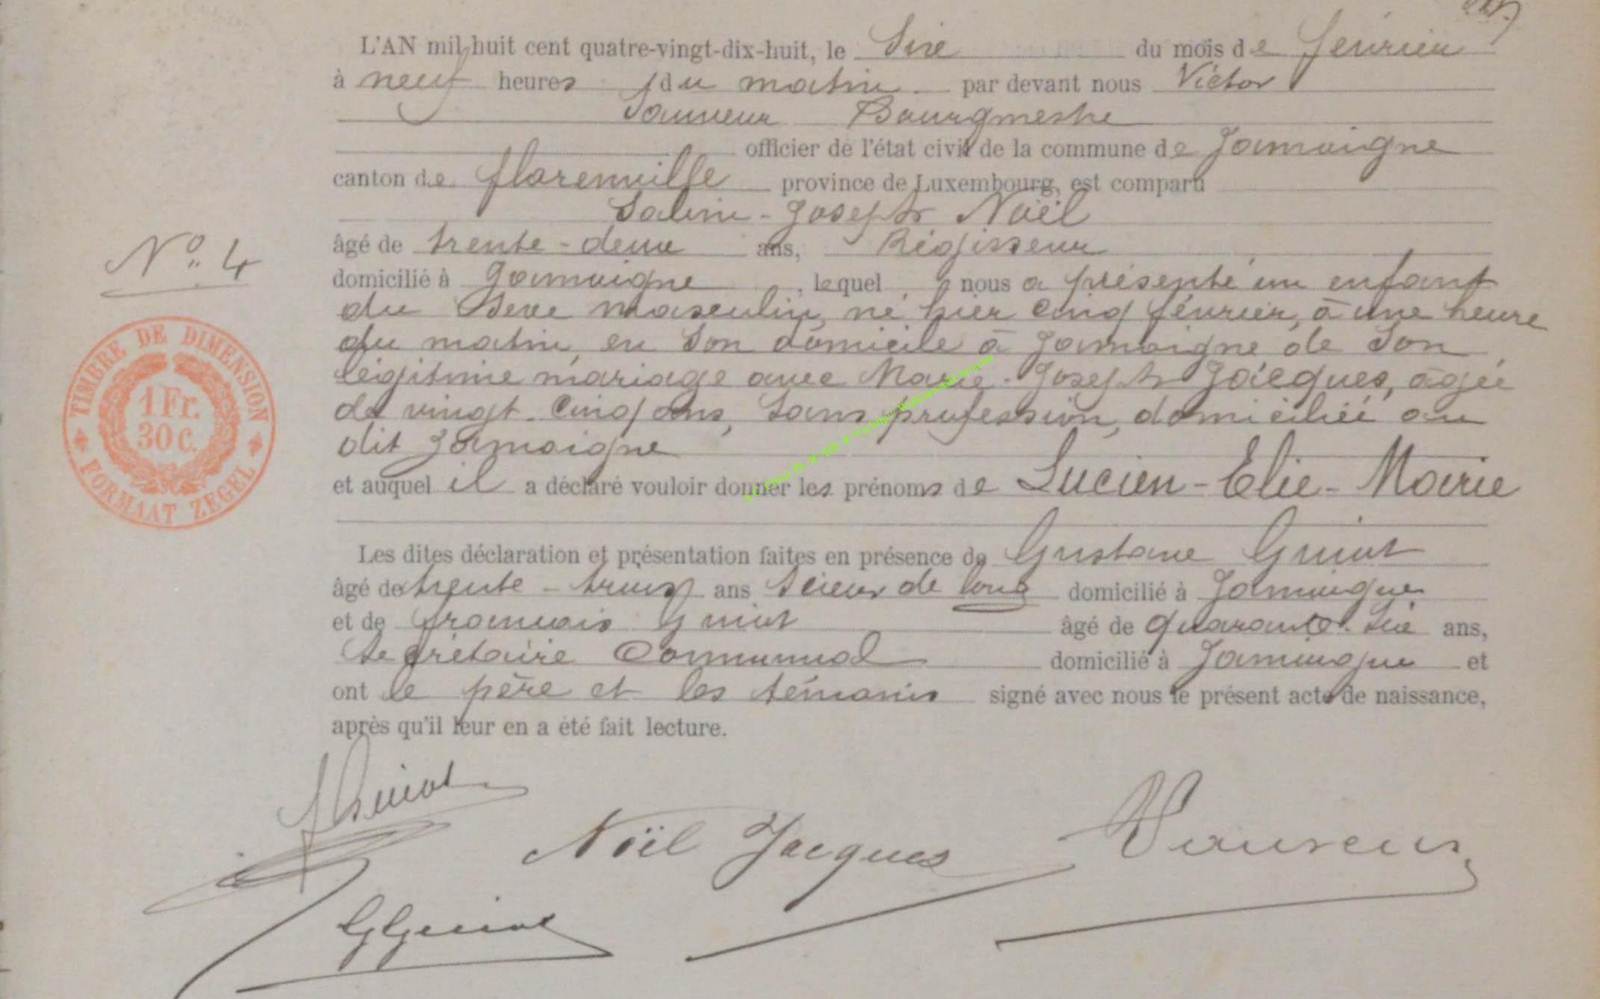 L'AN mil huit cent quatre-vingt-dix-huit, le Sixe du mois de février
à neuf heures du matin par devant nous Victor
Sauveur Bourgmestre
officier de l'état civil de la commune de Jamoigne
canton de florenville province de Luxembourg, est comparu
Joseph Noël
âgé de trente-deux ans, Régisseur
N° 4
domicilié à Jamoigne, lequel nous a présenté un enfant
du Sexe masculin, né hier cinq février, à une heure
du matin, en Son domicile à Jamoigne de Son
légitime mariage avec Marie-Joseph Jacques, agée
de vingt-cinq ans, Sans profession, domiciliée au
dit Jamoigne
TIMBRE DE DIMENSION
1 Fr.
30 C.
FORMAAT ZEGEL
et auquel il a déclaré vouloir donner les prénoms de Lucien-Elie-Marie
Les dites déclaration et présentation faites en présence de Gustave Guiot
âgé de trente-trois ans Scieur de long domicilié à Jamoigne
et de francois Guiot âgé de quarante-six ans,
Secrétaire Communal domicilié à Jamoigne et
ont le père et les témoins signé avec nous le présent acte de naissance,
après qu'il leur en a été fait lecture.
Guiot
Noël Jacques
VSauveur
GGuiot